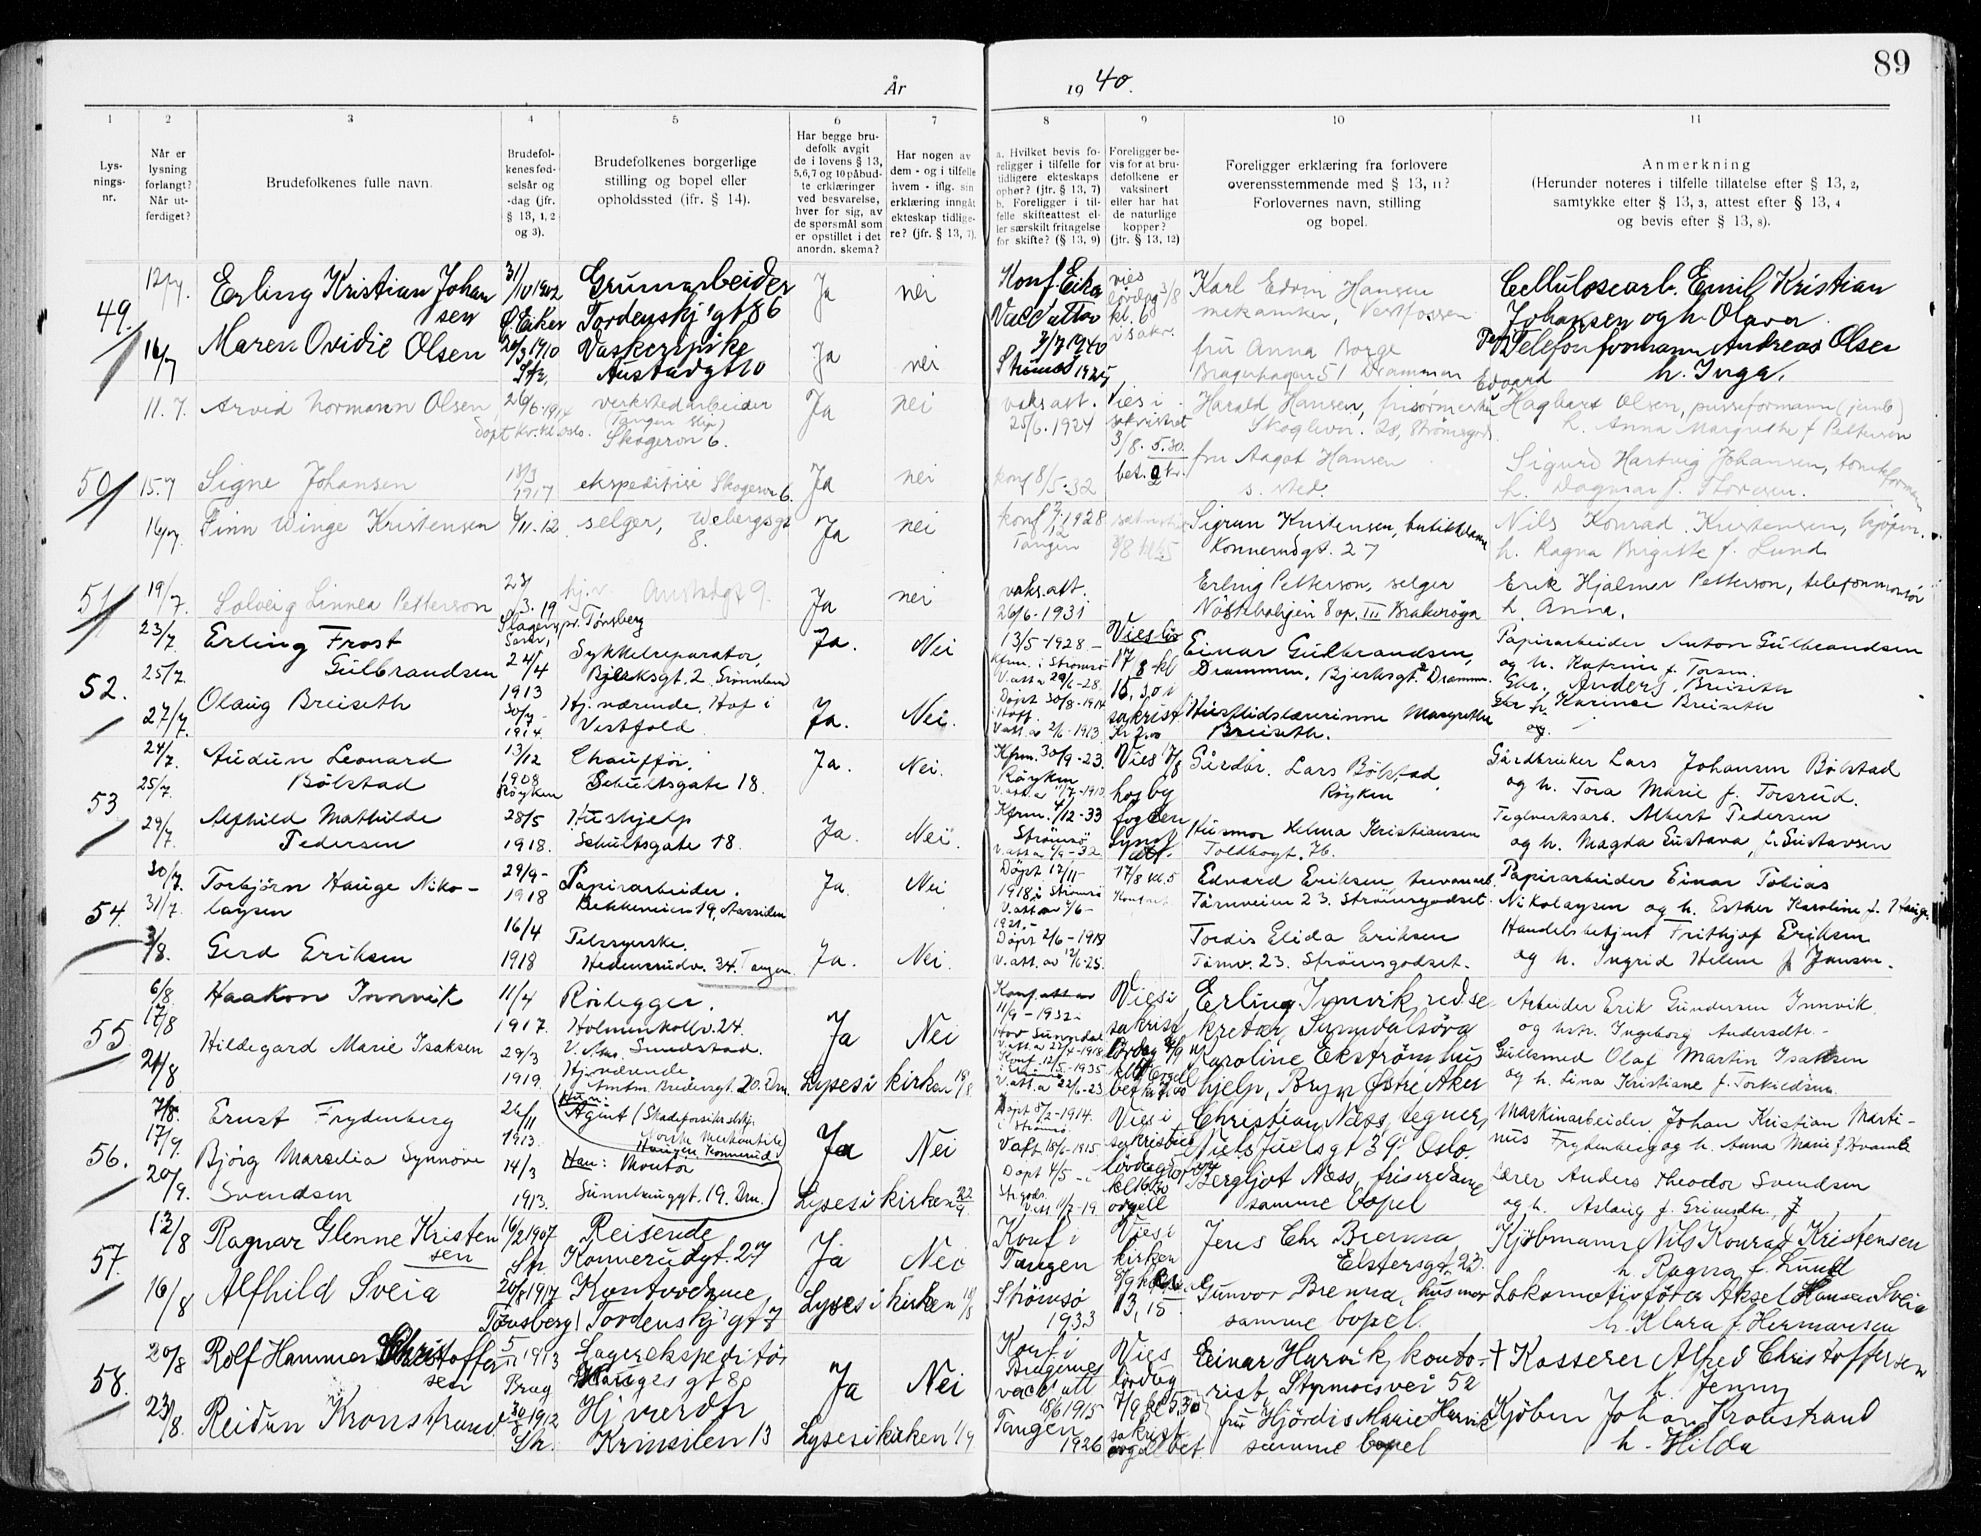 89
År 1940.
1 2 3 4 5 6 7 8 9 10 11
Lysningsnr.
Når er lysning forlangt? Når utferdiget?
Brudefolkenes fulle navn.
Brudefolkenes fødselsår og -dag (jfr. § 13, 1, 2 og 3).
Brudefolkenes borgerlige stilling og bopel eller opholdssted (jfr. § 14).
Har begge brudefolk avgit de i lovens § 13, 5,6,7 og 10 påbudte erklæringer ved besvarelse, hver for sig, av de spørsmål som er opstillet i det anordn. skema?
Har nogen av dem - og i tilfelle hvem - iflg. sin erklæring inngått ekteskap tidligere? (jfr. § 13, 7).
a. Hvilket bevis foreligger i tilfelle for tidligere ekteskaps ophør? (jfr. § 13, 7) b. Foreligger i tilfelle skifteattest eller særskilt fritagelse for skifte? (§ 13, 9)
Foreligger bevis for at brudefolkene er vaksinert eller har hat de naturlige kopper? (jfr. § 13, 12)
Foreligger erklæring fra forlovere overensstemmende med § 13, 11? Forlovernes navn, stilling og bopel.
Anmerkning
(Herunder noteres i tilfelle tillatelse efter § 13, 2, samtykke efter § 13, 3, attest efter § 13, 4 og bevis efter § 13, 8).
49. 12/7. Erling Kristian Johansen 31/10 1902 Ø. Eiker Grunnarbeider Tordenskj.gt 86 Ja nei
Vacc. attor 3/7 1940 vies lørdag 3/8 kl. 6 i sakr. Karl Edvin Hansen mekaniker, Vestfossen
Cellulosearb. Emil Kristian Johansen og h. Olava
16/7 Maren Ovidie Olsen 1910 Austadgt 10 Ja nei
Strømsø 1925 fru Anna Borge Bragerhagen 51 Drammen
Telefonformann Andreas Olsen h. Inga.
50 11.7. Arvid Normann Olsen 26/6.1914 verkstedarbeider Skogerv 6. Ja nei
vaks.att. 25/6.1924 Vies i sakristiet 3/8. 5.30 bet. 2 kr. Harald Hansen, frisørmester Skoglivn. 28, Strømsgods.
Edvard Hagbart Olsen, h. Anna Margrethe f Pettersen
15.7 Signe Johansen 18/3 1917 ekspeditrise Skogerv 6. Ja nei
konf 8/5-32 fru Aagot Hansen s. sted.
Sigurd Hartvig Johansen, h. Dagmar f. Thoresen.
51 16/7. Finn Winge Kristensen 6/11.12 selger, Webergsgt 8. Ja nei
konf 1928 Tangen Sigrun Kristensen, Konnerudgt. 27
Nils Konrad Kristensen, kjøpm. h. Ragna Birgitte f. Lund
19/7. Solveig Linnea Petterson 3.19 hj.v. Austadgt 9. Ja nei
vaks.att. 26/6-1931 Erling Petterson, selger 8 op. III Brakerøya
Erik Hjalmar Petterson, telefonmontør h. Anna.
52. 23/7. 25/7. Erling Frost Gulbrandsen 24/4 1913 Sykkelreparatør, Bjerksgt. 2 Grønland Ja. Nei
13/5-1928 - Kfm. i Strømsø V.att a 29/6-28. 17/8 kl 15,30 i sakrist Kr 2.00 Einar Gulbrandsen, Drammen, Bjerksgt. 2 Drammen.
Papirarbeider Anton Gulbrandsen og h. Katrine f. Torsen.
27/7. Olaug Breiseth 30/7- 1914 Hj. værende. Hof i Vestfold. Ja. Nei.
Døpt 30/8-1914 i Hoff. V.att. av 2/6-1913. Husflidslærerinne Margrethe Breiseth.
Gbr. Anders Breiseth og h. Karine Breiseth
53. 24/7. 25/7. Audun Leonard Bølstad 13/12 1908 Røyken Chauffør. Schultsgate 18. Ja. Nei.
Kfrm. 30/9-23. Røyken Vies 17/8 hos byfogden Gårdbr. Lars Bølstad, Røyken
Gårdbruker Lars Johansen Bølstad og h. Tora Marie f. Torsrud.
29/7. Alfhild Mathilde Pedersen 28/5 1918. Hushjelp Schultsgate 18. Ja. Nei.
Kfrm. 4/12-33 Strømsø Husmor Helma Kristiansen Toldbogt. 76.
Teglverksarb. Albert Pedersen og h. Magda Gustava, f. Gustavsen
54. 30/7. 31/7. Torbjørn Hauge Nikolaysen 29/9- 1918 Papirarbeider. Bekkeveien 19, Aassiden Ja. Nei
Døpt 17/11- 1918 i Strømsø 17/8 kl. 5 Edvard Eriksen, Tårnveien 23. Strømsgodset.
Papirarbeider Einar Tobias Nikolaysen og h. Esther Karoline f. Hauge.
3/8. Gerd Eriksen 16/4 1918 Pelssyerske. Hedensrudv. 34. Tangen Ja. Nei.
Døpt 2/6-1918 V.att. av 12/6-25. Tordis Elida Eriksen Tårnv. 23. Strømsgodset.
Handelsbetjent Frithjof Eriksen og h. Ingrid Helene f Jansen.
55. 6/8. 17/8 Haakon Innvik 11/4 1917. Rørlegger. Holmenkollv. 24. V. Aker Sundstad. Ja Nei
11/9-1932 Vies i sakrist lørdag Erling Innvik, redsekretær, Sunndalsøra
Arbeider Erik Gundersen Innvik og hstr. Ingeborg Andersdtr.-
24/8 Hildegard Marie Isaksen 29/3 1919. Hj. værende Amtm. Breiensgt. 20. Drn. Lyses i kirken 18/8
Karoline Ekstrøm hushjelp, Bryn Østre Aker
Gullsmed Olaf Martin Isaksen og h. Lina Kristiane f. Torkildsen
56. 7/8. 17/9. Ernst Frydenberg 26/11 1913. Agent (Skadeforsikrelskp. Norske Merkantile) Haugen, Konnerud. Ja Nei
Døpt 8/2-1914. i Strømsø V.att 18/6-1915 Vies i sakristiet lørdag kl 16.30 orgell Christian Næss, tegner, Niels Juels gt 39. Oslo
Maskinarbeider, Johan Kristian Martinus Frydenberg og h. Anna Marie f Hvamb
20/9. Bjørg Marselia Synnøve Svendsen 14/3 1913. Han: Kontor Sunnlaugsgt. 19. Drn. Lyses i kirken 22/9
Døpt 4/5- Bergljot Næss, friserdame samme bopel
Lærer Anders Theodor Svendsen og h. Aslaug f. Grimsdtr.
57. 12/8 Ragnar Glenne Kristensen 16/2 1907 Str Reisende Konnerudgt. 27 Ja Nei
Konf i Tangen Vies i kirken 13,15 Jens Chr Brenna Elstersgt. 23.
Kjøbmann Nils Konrad Kristensen h. Ragna f. Lund
16/8 Alfhild Sveia 20/8 1917 Tønsberg Kontordame, Tordenskj gt 7 Lyses i kirken 18/8
Strømsø 1933 Gunvor Brenna, husmor samme bopel.
Lokomotivfører Aksel Hansen Sveia h. Klara f. Hermansen
58. 20/8 Rolf Hammer Christoffersen 5/11 1913 Brag Lagerekspeditør Hauges gt 80 Ja Nei
Konf i Bragernes vacc. att 18/6 1915 Vies lørdag 7/9 kl 5.30 sakrist orgel bet. Einar Hurvik, kontorist, Styrmoesvei 52
† Kasserer Alfred Christoffersen h. Jenny
23/8. Reidun Kronstrand 1912 Str. Hj værdtr Krinsilen 13 Lyses i kirken 1/9
Tangen 1926 fru Hjørdis Marie Hurvik samme bopel
Kjøbm Johan Kronstrand h. Hilda